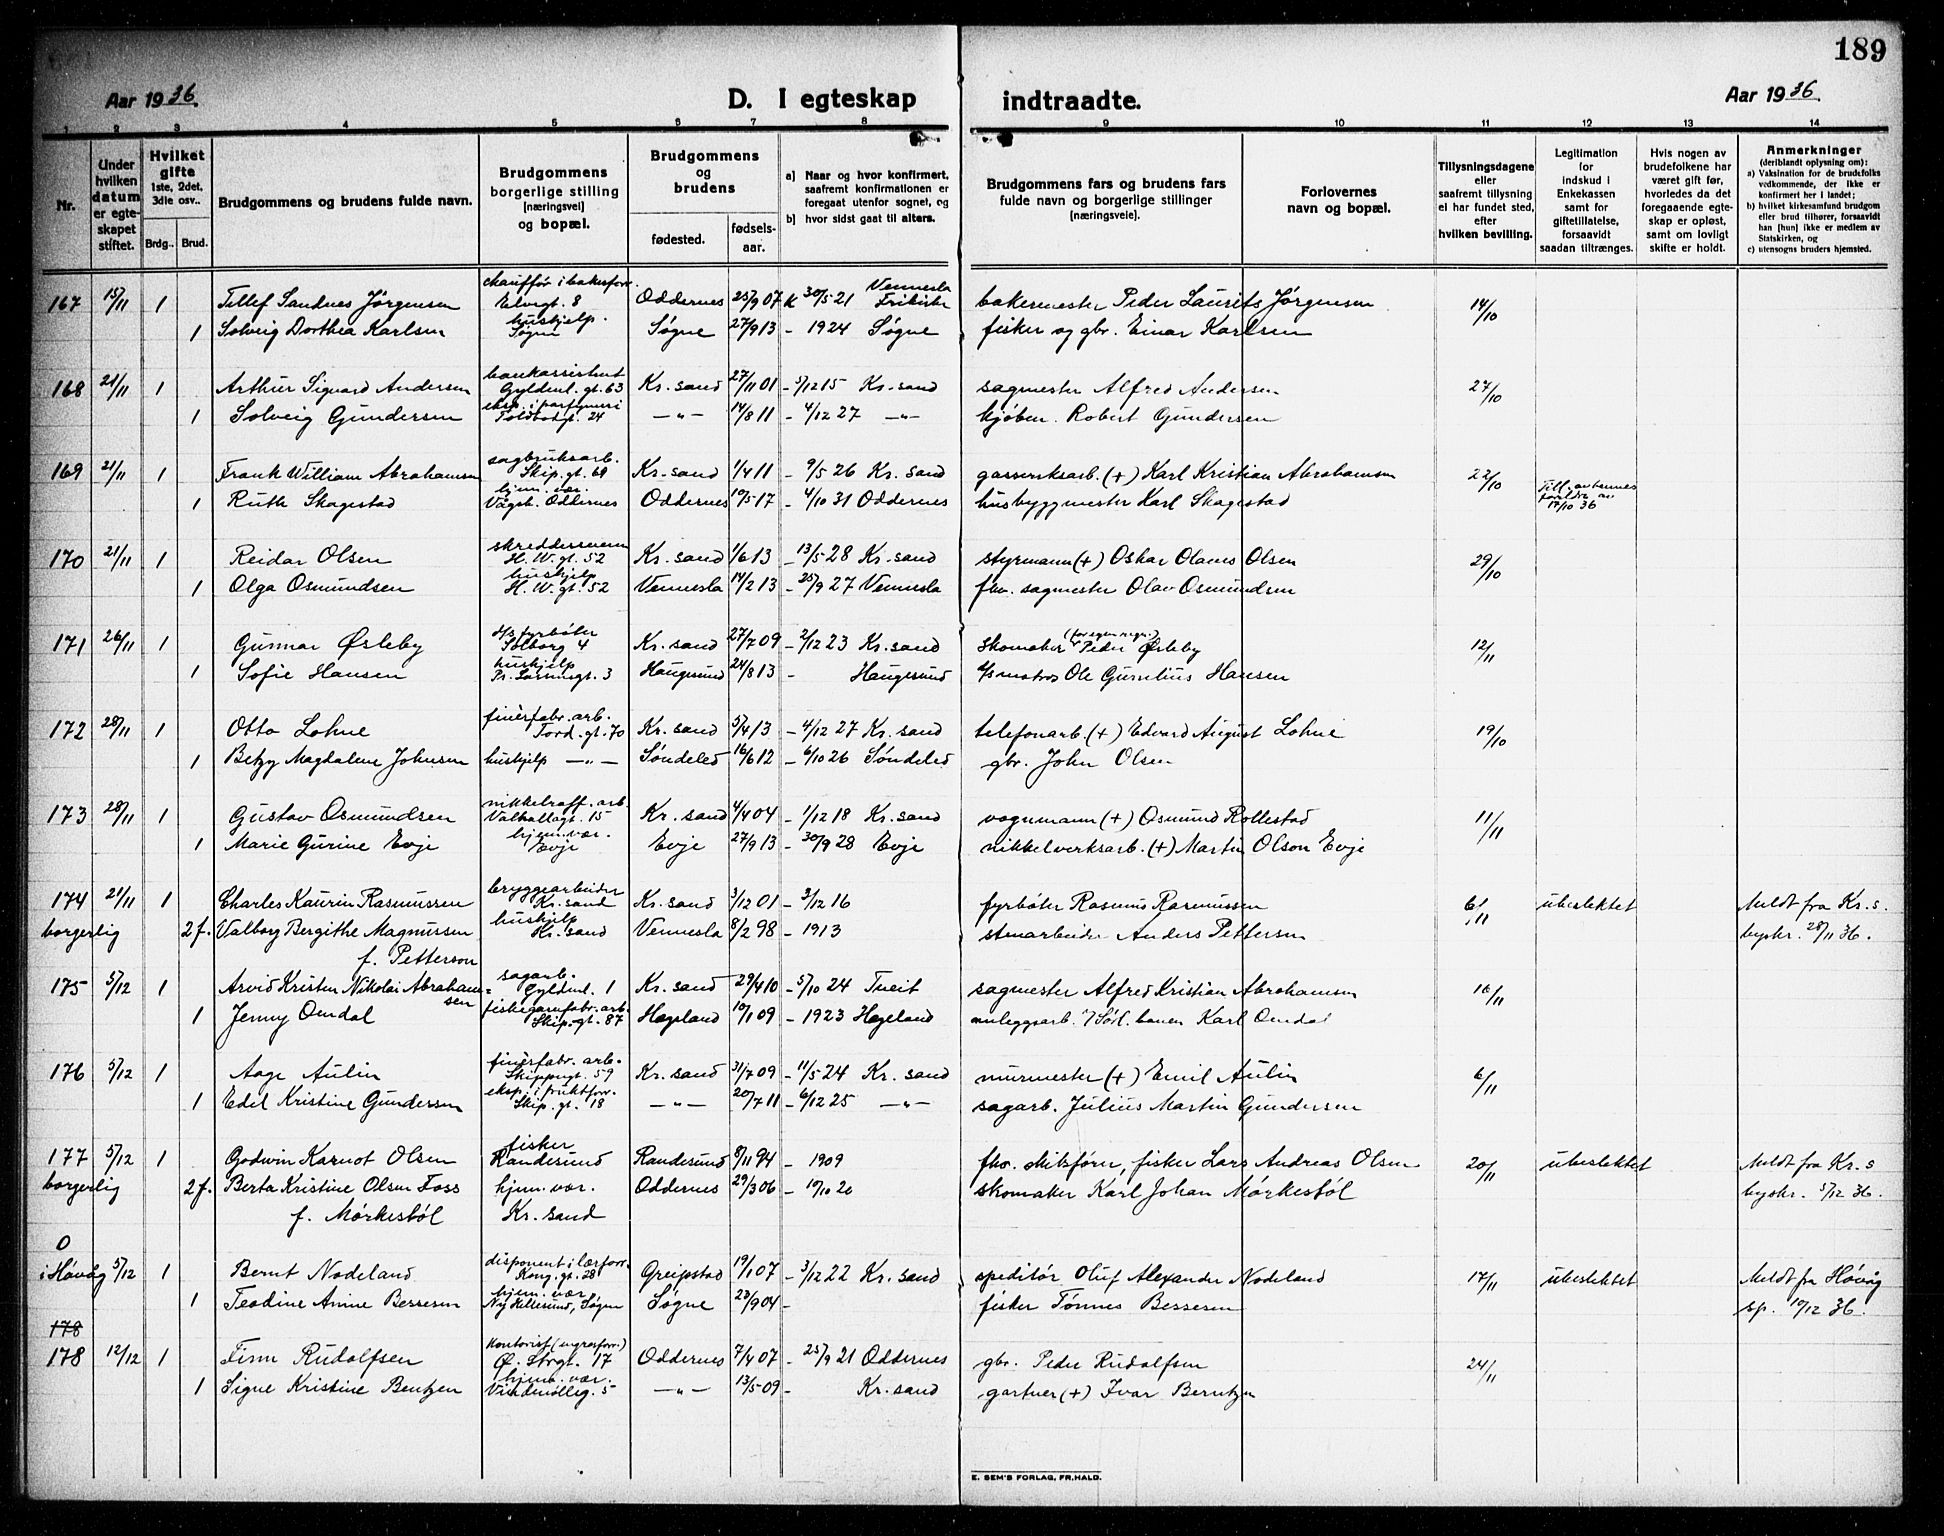 189
Aar 1936. D. I egteskap indtraadte. Aar 1936.
1 2 3 4 5 6 7 8 9 10 11 12 13 14
Nr.
Under hvilken datum er egteskapet stiftet.
Hvilket gifte 1ste, 2det, 3die osv..
Brdg.. Brud.
Brudgommens og brudens fulde navn.
Brudgommens borgerlige stilling [næringsvei] og bopæl.
Brudgommens og brudens
fødested. fødsels-aar.
a) Naar og hvor konfirmert, saafremt konfirmationen er foregaat utenfor sognet, og
b) hvor sidst gaat til alters.
Brudgommens fars og brudens fars fulde navn og borgerlige stillinger [næringsveie].
Forlovernes navn og bopæl.
Tillysningsdagene eller saafremt tillysning ei har fundet sted, efter hvilken bevilling.
Legitimation for indskud i Enkekassen samt for giftetillatelse, forsaavidt saadan tiltrænges.
Hvis nogen av brudefolkene har været gift før, hvorledes da det foregaaende egteskap er opløst, samt om lovligt skifte er holdt.
Anmerkninger (deriblandt oplysning om):
a) Vaksination for de brudefolks vedkommende, der ikke er konfirmert her i landet;
b) hvilket kirkesamfund brudgom eller brud tilhører, forsaavidt han [hun] ikke er medlem av Statskirken, og
c) utensogns bruders hjemsted.
167 15/11 1 Tellef Sandnes Jørgensen chauffør i bakerforr. Elvegt. 8 Oddernes 25/9 07 K 30/5 21 Vennesla Frikirke bakermester Peder Laurits Jørgensen 14/10
1 Solveig Dorthea Karlsen hushjelp. Søgne Søgne 27/9 13 - 1924 Søgne fisker og gbr. Einar Karlsen
168 21/11 1 Arthur Sigvard Andersen bankassistent Gyldenl. gt. 63 Kr. sand 27/11 01 - 5/12 15 Kr. sand sagmester Alfred Andersen 27/10
1 Solveig Gundersen eksp. i parfymeri Toldbodg. 24 -"- 14/8 11 - 4/12 27 -"- kjøbm. Robert Gundersen
169 21/11 1 Frank William Abrahamsen sagbruksarb. Skip. gt. 69 Kr. sand 1/4 11 - 9/5 26 Kr. sand gassverksarb. (+) Karl Kristian Abrahamsen 22/10
1 Ruth Skagestad hjem. vær. Vågsb. Oddernes Oddernes 10/5 17 - 4/10 31 Oddernes husbyggmester Karl Skagestad Till. av hennes foreldre av 17/10 36
170 21/11 1 Reidar Olsen skreddersvenn H. W. gt. 52 Kr. sand 1/6 13 - 13/5 28 Kr. sand styrmann (+) Oskar Olaves Olsen 29/10
1 Olga Osmundsen hushjelp H. W. gt. 52 Vennesla 14/2 13 - 25/9 27 Vennesla fhv. sagmester Olav Osmundsen
171 26/11 1 Gunnar Ørsleby d/s fyrbøter Solborg 4 Kr. sand 27/7 09 - 2/12 23 Kr. sand skomaker (for egen regn.) Peder Ørsleby 12/11
1 Sofie Hansen hushjelp 3 Haugesund 24/8 13 - Haugesund d/s matros Ole Gurnelius Hansen
172 28/11 1 Otto Lohne finérfabr. arb. Tord. gt. 70 Kr. sand 5/4 13 - 4/12 27 Kr. sand telefonarb. (+) Edvard August Lohne 19/10
1 Betzy Magdalene Johnsen hushjelp -"- Søndeled 16/6 12 - 6/10 26 Søndeled gbr. John Olsen
173 28/11 1 Gustav Osmundsen nikkelraff. arb. Valhallagt. 15 Kr. sand 4/4 04 - 1/12 18 Kr. sand vognmann (+) Osmund Rollestad 11/11
1 Marie Gurine Evje hjem. vær. Evje Evje 27/9 13 - 30/9 28 Evje nikkelverksarb. (+) Martin Olson Evje
174 21/11 1 Charles Kaurin Rasmussen bryggearbeider Kr. sand Kr. sand 3/12 01 - 3/12 16 fyrbøter Rasmus Rasmussen 6/11 ubeslektet Meldt fra Kr. s.
borgerlig 2 f. Valborg Bergithe Magnussen hushjelp Kr. sand Vennesla 8/2 98 - 1913 stenarbeider Anders Pettersen byskr. 28/11 36.
f. Petterson
175 5/12 1 Arvid Kristen Nikolai Abrahamsen sagarb. Gyldenl. 1 Kr. sand 29/4 10 - 5/10 24 Tveit sagmester Alfred Kristian Abrahamsen 16/11
1 Jenny Omdal fiskegarnfabr. arb. Skip. gt. 87 Hægeland 10/1 09 - 1923 Hægeland anleggsarb. v/ Sørl. banen Karl Omdal
176 5/12 1 Aage Aulin finérfabr. arb. Skippergt. 59 Kr. sand 31/7 09 - 11/5 24 Kr. sand murmester (+) Emil Aulin 6/11
1 Edel Kristine Gundersen eksp. i fruktforr. Skip. gt. 18 -"- 20/7 11 - 6/12 25 -"- sagarb. Julius Martin Gundersen
177 5/12 1 Godwin Karnot Olsen fisker Randesund Randesund 8/11 94 - 1909 fhv. , fisker Lars Andreas Olsen 20/11 ubeslektet Meldt fra Kr. s
borgerlig 2 f. Berta Kristine Olsen Foss hjem. vær. Oddernes 29/3 06 - 10/10 20 skomaker Karl Johan Mørkesdøl byskr. 5/12 36.
f. Mørkesdøl Kr. sand
0
i Høvåg 5/12 1 Bernt Nodeland disponent i lærforr. Kong. gt. 28 Greipstad 19/1 07 - 3/12 22 Kr. sand speditør Oluf Alexander Nodeland 17/11 ubeslektet Meldt fra Høvåg
1 Teodine Amine Bessesen hjem. vær Ny Hellesund, Søgne Søgne 23/9 04 - fisker Tønnes Bessesen sp. 10/12 36.
178
178 12/12 1 Finn Rudolfsen kontorist (engrosforr.) Ø. Strgt. 17 Oddernes 7/4 07 - 25/9 21 Oddernes gbr. Peder Rudolfsen 24/11
1 Signe Kristine Bentzen hjem. vær. Vindmølleg. 5 -"- 13/5 09 - Kr. sand gartner (+) Ivar Berntzen
E. SEM'S FORLAG, FR.HALD.